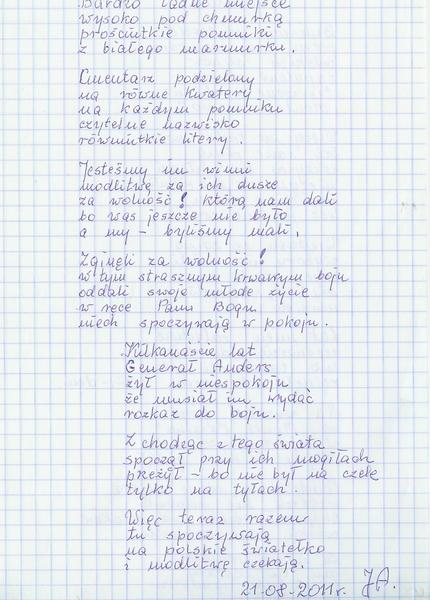 Bardzo ładne miejsce
wysoko pod chmurką
prościutkie pomniki
z białego marmurku.
Cmentarz podzielony
na równe kwatery
na każdym pomniku
czytelne nazwisko
równiutkie litery.
Jesteśmy im winni
modlitwę za ich dusze
za wolność! którą nam dali
bo was jeszcze nie było
a my - byliśmy mali.
Zginęli za wolność!
w tym strasznym krwawym boju
oddali swoje młode życie
w ręce Pana Boga
niech spoczywają w pokoju.
Kilkanaście lat
Generał Anders
żył w niespokoju
że musiał im wydać
rozkaz do boju.
Z chodząc z tego świata
spoczął przy ich mogiłach
przeżył - bo nie był na czele
tylko na tyłach.
Więc teraz razem
tu spoczywają
na polskie światełko
i modlitwę czekają.
21-08-2011r. JA.